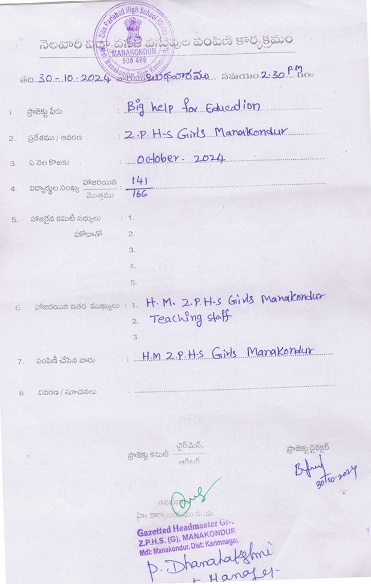 Zilla Parishad High School (Girls)
MANAKONDUR
505 469
నెలవారి విద్యా వనతి వస్తువుల పంపిణి కార్యక్రమం
తేది: 30-10-2024 వారము బుధవారము సమయం 2:30 P.M గం
1. ప్రాజెక్టు పేరు : Big help for Education
2. ప్రదేశము / ఆవరణ : Z.P H-S Girls Manakondur
3. ఏ నెల కొఱకు : October. 2024
4. విద్యార్థుల సంఖ్య హాజరయిన 141
మొత్తము 166
5. హాజరైన కమిటీ సభ్యులు : 1.
హోదాతో 2.
3.
4.
5.
6. హాజరయిన ఇతర ముఖ్యులు : 1. H.M. Z.P.H-S Girls Manakondur
2. Teaching staff
3.
7. పంపిణీ చేసిన వారు : H.M Z.P.H-S Girls Manakondur
8. వివరణ / సూచనలు :
ప్రాజెక్టు కమిటీ ఛైర్మెన్,
ప్రాజెక్టు డైరెక్టర్
30-10-2024
Gazetted Headmaster Gr-
Z.P.H.S. (G), MANAKONDUR
Mdl: Manakondur, Dist: Karimnagar.
P. Dhanalakshmi